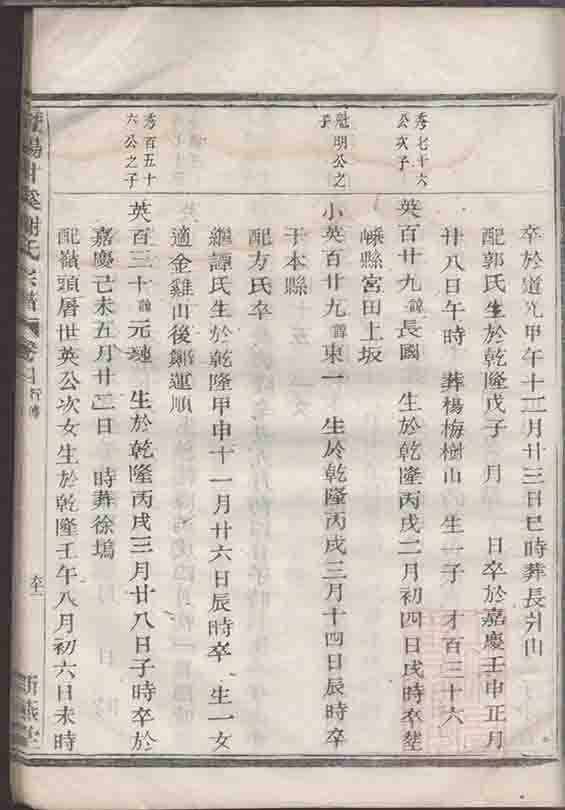 卒於道光甲午十二月廿三日巳時葬長弄山
配郭氏生於乾隆戊子 月 日卒於嘉慶壬申正月
廿八日午時 葬楊梅樹山 生一子 才百三十六
秀七十六
公次子
英百廿九諱長國 生於乾隆丙戌二月初四日戌時卒塟
嵊縣宮田上坂
魁明公之
子
小英百廿九諱東一 生於乾隆丙戌三月十四日辰時卒
于本縣
配方氏卒
繼譚氏生於乾隆甲申十一月廿六日辰時卒 生一女
適金雞山後鄭運順
秀百五十
六公之子
英百三十諱元璉 生於乾隆丙戌三月廿八日子時卒於
嘉慶己未五月廿二日 時葬徐塢
配嶺頭厝世英公次女生於乾隆壬午八月初六日未時
陽甘溪謝氏宗譜 卷 行傳